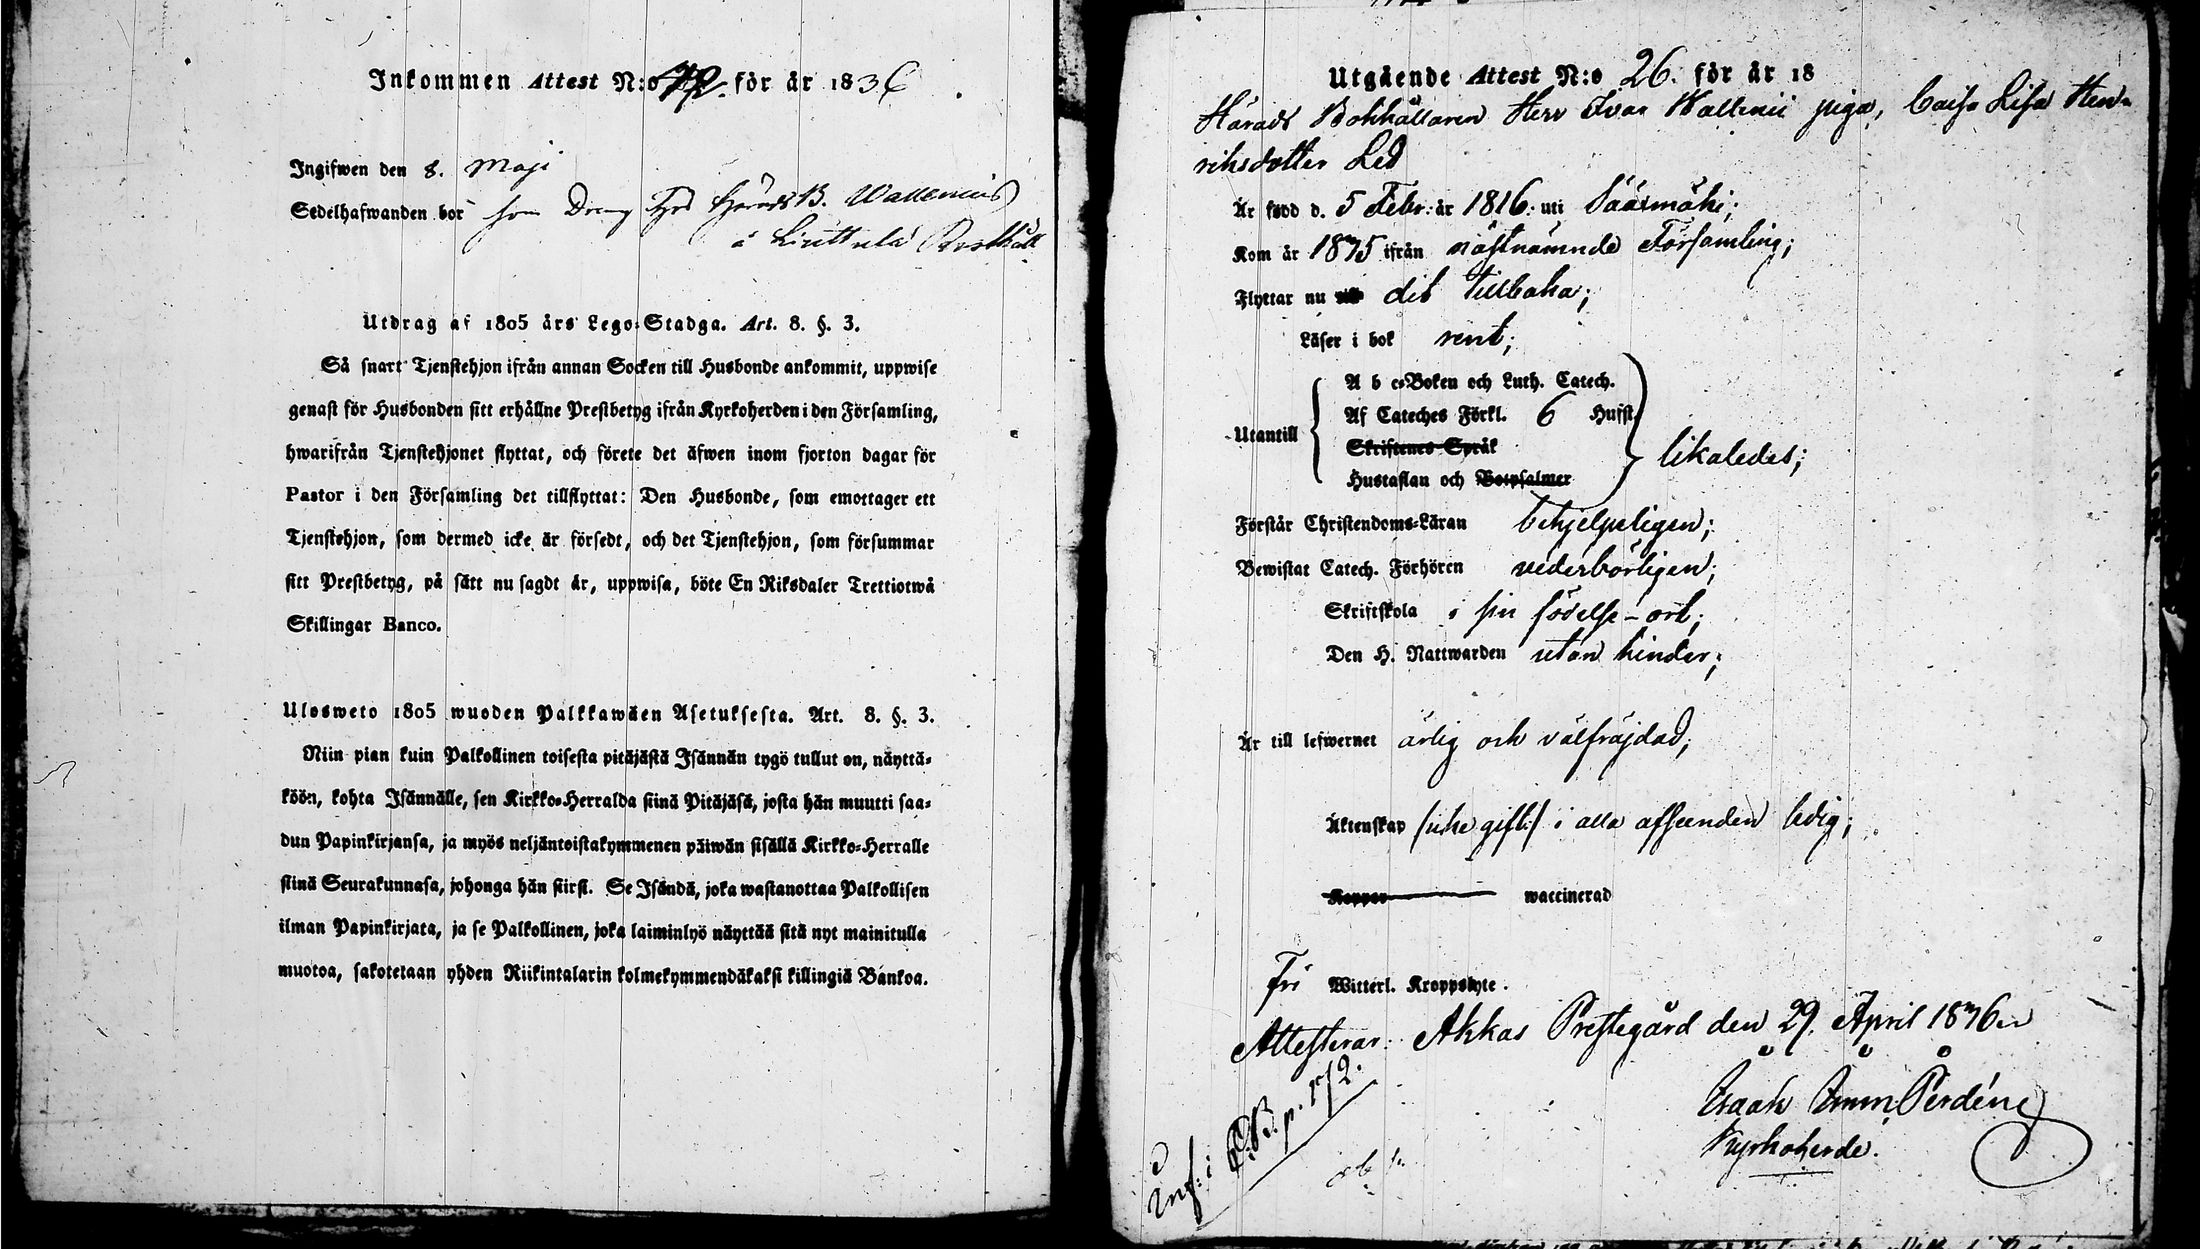 Inkommen Attest N:o 42. för år 1836
Ingifwen den 8. Maji
Sedelhafwanden bor som Dreng hos HäradsB. Wallenius
å Liuttula Rusthåll
Utdrag af 1805 års Lego-Stadga. Art. 8. §. 3.
Så snart Tjenstehjon ifrån annan Socken till Husbonde ankommit, uppwise
genast för Husbonden sitt erhållne Prestbetyg ifrån Kyrkoherden i den Församling,
hwarifrån Tjenstehjonet flyttat, och förete det äfwen inom fjorton dagar för
Pastor i den Församling det tillflyttat: Den Husbonde, som emottager ett
Tjenstehjon, som dermed icke är försedt, och det Tjenstehjon, som försummar
sitt Prestbetyg, på sätt nu sagdt är, uppwisa, böte En Riksdaler Trettiotwå
Skillingar Banco.
Ulosweto 1805 wuoden Palkkawäen Asetuksesta. Art. 8. §. 3.
Niin pian kuin Palkollinen toisesta pitäjästä Isännän tygö tullut on, näyttä-
köön, kohta Isännälle, sen Kirkko-Herralda siinä Pitäjäsä, josta hän muutti saa-
dun Papinkirjansa, ja myös neljäntoistakymmenen päiwän sisällä Kirkko-Herralle
siinä Seurakunnasa, johonga hän siirsi. Se Isändä, joka wastanottaa Palkollisen
ilman Papinkirjata, ja se Palkollinen, joka laiminlyö näyttää sitä nyt mainitulla
muotoa, sakotetaan yhden Riikintalarin kolmekymmendäkaksi killingiä Bankoa.
Utgående Attest N:o 26. för år 18
Härads Bokhållaren Herr Ivar Wallenii piga, Caisa Lisa Hen-
riksdotter Led
Är född d. 5 Febr: år 1816: uti Sääxmäki;
Kom år 1835 ifrån nästnämnde Församling;
Flyttar nu till dit tillbaka;
Läser i bok rent;
A b c-Boken och Luth. Catech.
Af Cateches Förkl. 6 Hufst.
Utantill
Skriftenes Språk
likaledes;
Hustaflan och Botpsalmer
Förstår Christendoms-Läran behjelpeligen;
Bewistat Catech. Förhören vederbörligen;
Skriftskola i sin födelse-ort;
Den H. Nattwarden utan hinder;
Är till lefwernet ärlig och välfräjdad;
Äktenskap /icke gift:/ i alla afseenden ledig;
Koppor waccinerad
Fri Witterl. Kroppslyte.
Attesterar. Akkas Prestegård den 29. April 1836.
Isaak Imm. Perdén
Kyrkoherde.
Inf: i C.B. p. 172.